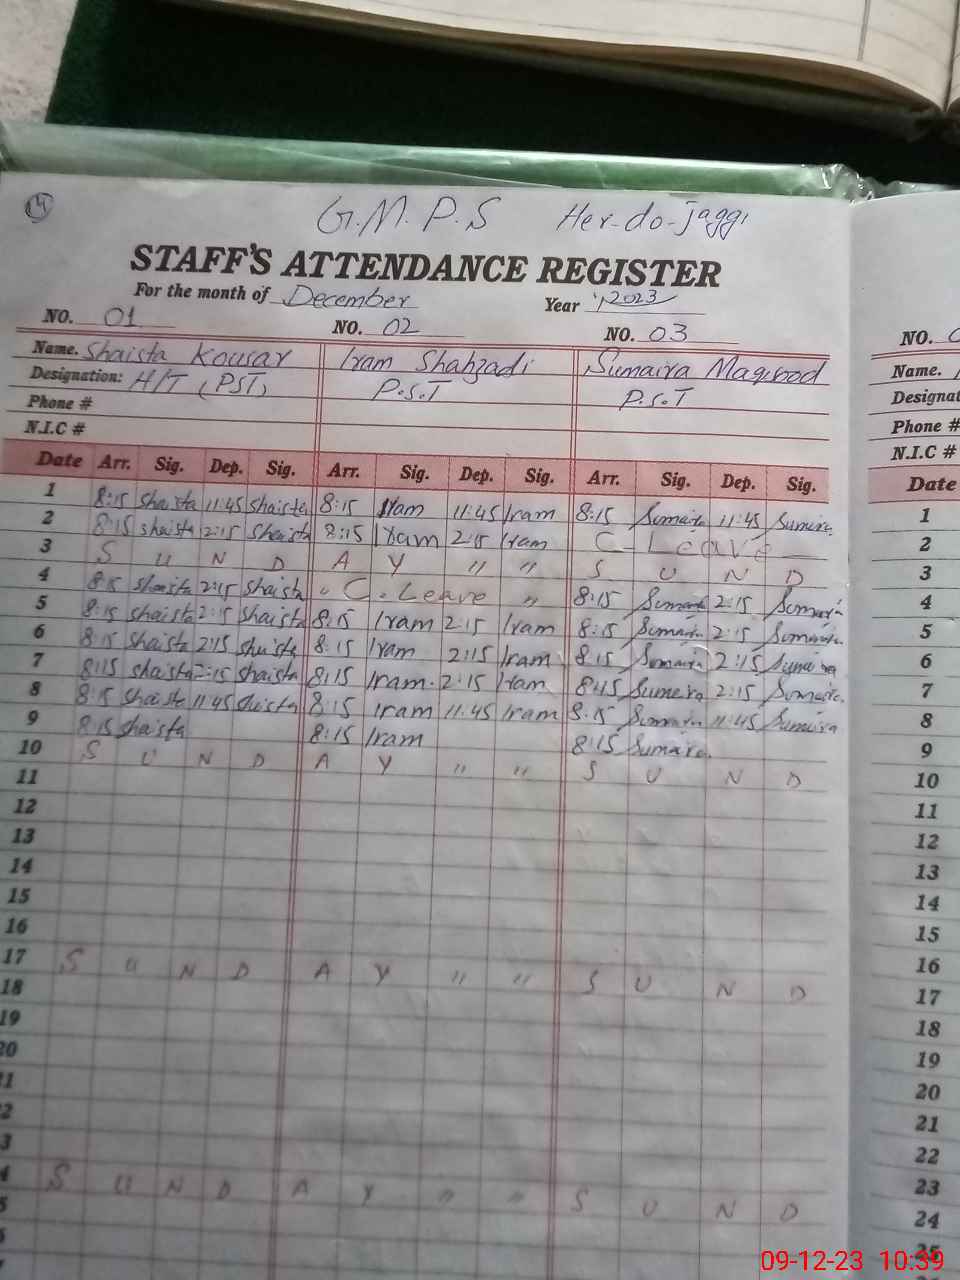 14
G.M.P.S Her-do-jaggi
STAFF'S ATTENDANCE REGISTER
For the month of December Year 2023
NO. 01 NO. 02 NO. 03 NO.
Name. Shaista Kousar Iram Shahzadi Sumaira Maqsood Name.
Designation: H/T (PST) P.S.T P.S.T Designat
Phone # Phone #
N.I.C # N.I.C #
Date Arr. Sig. Dep. Sig. Arr. Sig. Dep. Sig. Arr. Sig. Dep. Sig. Date
1 8:15 Shaista 11:45 Shaista 8:15 Iram 11:45 Iram 8:15 Sumaira 11:45 Sumaira 1
2 8:15 Shaista 2:15 Shaista 8:15 Iram 2:15 Iram C-Leave 2
3 S U N D A Y " " S U N D 3
4 8:15 Shaista 2:15 Shaista " C. Leave " 8:15 Sumaira 2:15 Sumaira 4
5 8:15 Shaista 2:15 Shaista 8:15 Iram 2:15 Iram 8:15 Sumaira 2:15 Sumaira 5
6 8:15 Shaista 2:15 Shaista 8:15 Iram 2:15 Iram 8:15 Sumaira 2:15 Sumaira 6
7 8:15 Shaista 2:15 Shaista 8:15 Iram. 2:15 Iram 8:15 Sumaira 2:15 Sumaira 7
8 8:15 Shaista 11:45 Shaista 8:15 Iram 11:45 Iram 8:15 Sumaira 11:45 Sumaira 8
9 8:15 Shaista 8:15 Iram 8:15 Sumaira 9
10 S U N D A Y " " S U N D 10
11 11
12 12
13 13
14 14
15 15
16 16
17 S U N D A Y " " S U N D 17
18 18
19 19
20 20
1 21
2 22
3 23
4 S U N D A Y " " S U N D 24
5 25
09-12-23 10:39